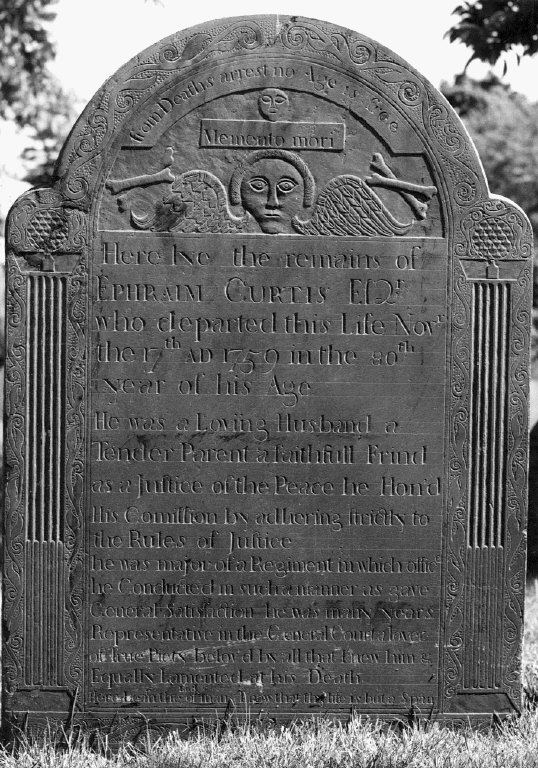 from Deaths arrest no Age is free
Memento mori
Here lye the remains of
EPHRAIM CURTIS ESQr
who departed this Life Novr
the 17th AD 1759 in the 80th
year of his Age
He was a Loving Husband a
Tender Parent a faithfull Frind
as a Justice of the Peace he Hon'd
His Comission by adhering strictly to
the Rules of Justice
he was major of a Regiment in which office
he Conducted in such a manner as gave
General Satisfaction he was many years
Representative in the General Court a lover
of True Piety belov'd by all that knew him &
Equally Lamented at his Death
that the life is but a Span